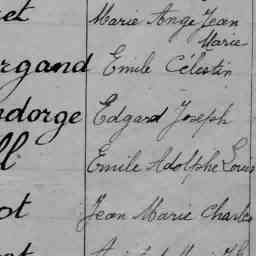 et Marie Ange Jean
Marie
rgand Emile Célestin
ndorge Edgard Joseph
ll Emile Adolphe Louis
ot Jean Marie Charles